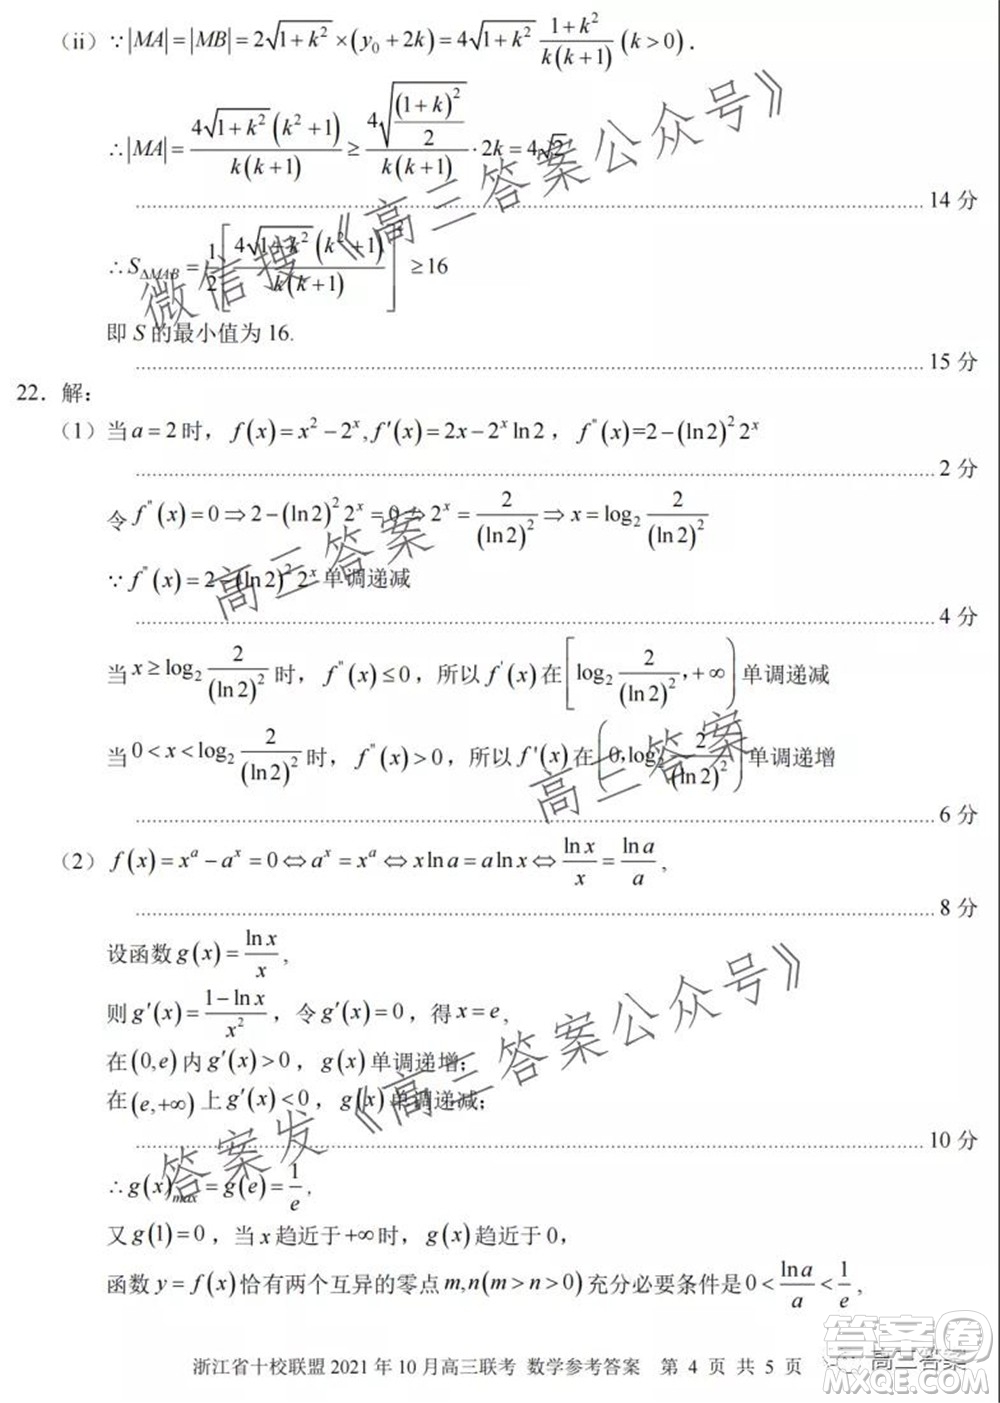 (ii) ∵|MA|=|MB|=2√(1+k²)×(y₀+2k)=4√(1+k²) (1+k²)/(k(k+1)) (k>0).
∴|MA|=4√(1+k²)(k²+1)/(k(k+1)) ≥ 4√((1+k)²/2)/(k(k+1))·2k=4√2
14 分
∴S△MAB=1/2[4√(1+k²)(k²+1)/(k(k+1))]²≥16
即 S 的最小值为 16.
15 分
22．解：
（1）当 a=2 时， f(x)=x²−2ˣ, f'(x)=2x−2ˣ ln2 ， f"(x)=2−(ln2)²2ˣ
2 分
令 f"(x)=0⇒2−(ln2)²2ˣ=0⇒2ˣ=2/(ln2)²⇒x=log₂ 2/(ln2)²
∵f"(x)=2−(ln2)²2ˣ 单调递减
4 分
当 x≥log₂ 2/(ln2)² 时，f"(x)≤0，所以 f'(x) 在 [log₂ 2/(ln2)²,+∞) 单调递减
当 0<x<log₂ 2/(ln2)² 时，f"(x)>0，所以 f'(x) 在 (0,log₂ 2/(ln2)²) 单调递增
6 分
（2） f(x)=xᵃ−aˣ=0⇔aˣ=xᵃ⇔x ln a=a ln x⇔ln x/x=ln a/a,
8 分
设函数 g(x)=ln x/x,
则 g'(x)=(1−ln x)/x² ，令 g'(x)=0，得 x=e,
在 (0,e) 内 g'(x)>0，g(x) 单调递增；
在 (e,+∞) 上 g'(x)<0，g(x) 单调递减；
10 分
∴g(x)max=g(e)=1/e,
又 g(1)=0，当 x 趋近于 +∞ 时，g(x) 趋近于 0，
函数 y=f(x) 恰有两个互异的零点 m,n(m>n>0) 充分必要条件是 0<ln a/a<1/e,
浙江省十校联盟 2021 年 10 月高三联考 数学参考答案 第 4 页 共 5 页
微信搜《高三答案公众号》
高三答案
高三答案
答案发《高三答案公众号》
高三答案
答案圈